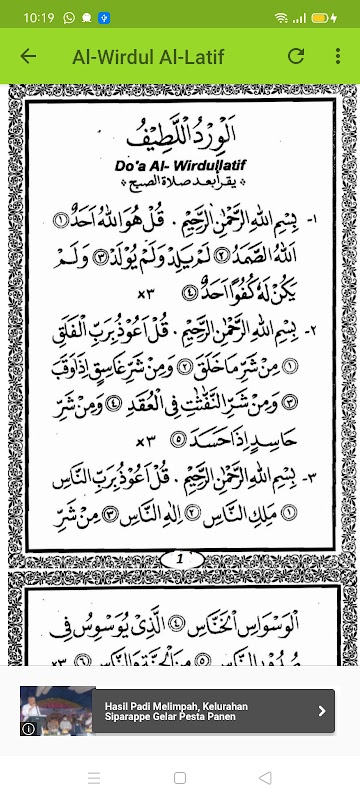 10:19
Al-Wirdul Al-Latif
اَلْوِرْدُ اللَّطِيْفُ
Do'a Al- Wirdullatif
يقرأ بعد صلاة الصبح
١- بِسْمِ اللهِ الرَّحْمٰنِ الرَّحِيْمِ . قُلْ هُوَ اللهُ اَحَدٌ ①
اَللهُ الصَّمَدُ ② لَمْ يَلِدْ وَلَمْ يُوْلَدْ ③ وَلَمْ
يَكُنْ لَهُ كُفُوًا اَحَدٌ ④ ×٣
٢- بِسْمِ اللهِ الرَّحْمٰنِ الرَّحِيْمِ . قُلْ اَعُوْذُ بِرَبِّ الْفَلَقِ
① مِنْ شَرِّ مَا خَلَقَ ② وَمِنْ شَرِّ غَاسِقٍ اِذَا وَقَبَ
③ وَمِنْ شَرِّ النَّفّٰثٰتِ فِي الْعُقَدِ ④ وَمِنْ شَرِّ
حَاسِدٍ اِذَا حَسَدَ ⑤ ×٣
٣- بِسْمِ اللهِ الرَّحْمٰنِ الرَّحِيْمِ . قُلْ اَعُوْذُ بِرَبِّ النَّاسِ
① مَلِكِ النَّاسِ ② اِلٰهِ النَّاسِ ③ مِنْ شَرِّ
1
الْوَسْوَاسِ الْخَنَّاسِ ④ الَّذِيْ يُوَسْوِسُ فِيْ
صُدُوْرِ النَّاسِ ⑤ مِنَ الْجِنَّةِ وَالنَّاسِ ⑥ ×٣
Hasil Padi Melimpah, Kelurahan
Siparappe Gelar Pesta Panen